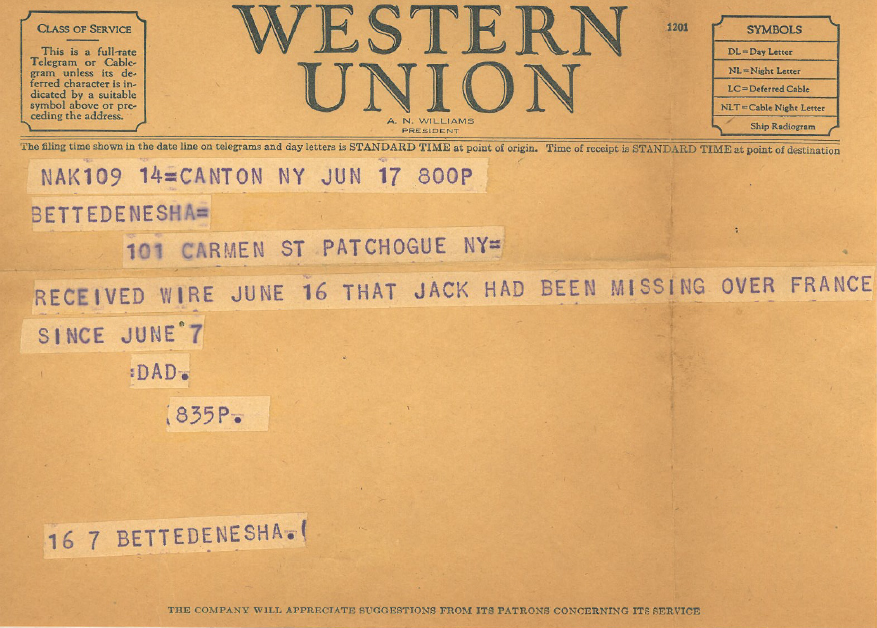 CLASS OF SERVICE
This is a full-rate
Telegram or Cable-
gram unless its de-
ferred character is in-
dicated by a suitable
symbol above or pre-
ceding the address.
WESTERN
UNION
A. N. WILLIAMS
PRESIDENT
1201
SYMBOLS
DL=Day Letter
NL=Night Letter
LC=Deferred Cable
NLT=Cable Night Letter
Ship Radiogram
The filing time shown in the date line on telegrams and day letters is STANDARD TIME at point of origin. Time of receipt is STANDARD TIME at point of destination
NAK109 14=CANTON NY JUN 17 800P
BETTEDENESHA=
101 CARMEN ST PATCHOGUE NY=
RECEIVED WIRE JUNE 16 THAT JACK HAD BEEN MISSING OVER FRANCE
SINCE JUNE 7
:DAD.
835P.
16 7 BETTEDENESHA.(
THE COMPANY WILL APPRECIATE SUGGESTIONS FROM ITS PATRONS CONCERNING ITS SERVICE